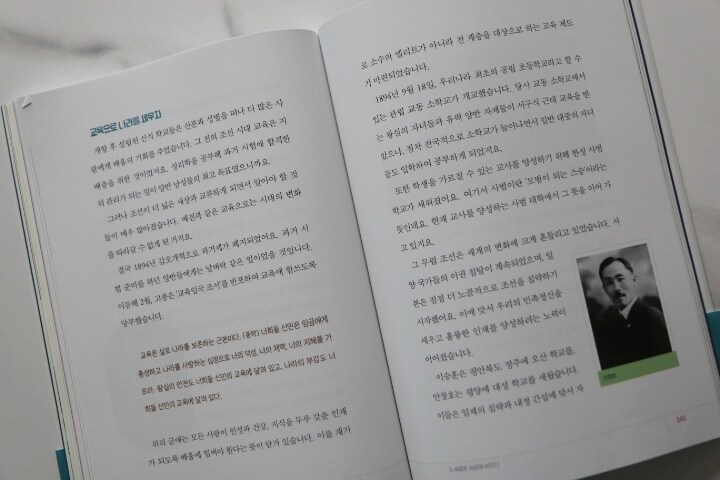 교육으로 나라를 세우자
개항 후 설립된 신식 학교들은 신분과 성별을 떠나 더 많은 사
람에게 배움의 기회를 주었습니다. 그 전의 조선 시대 교육은 지
배층을 위한 것이었지요. 성리학을 공부해 과거 시험에 합격한
뒤 관리가 되는 일이 양반 남성들의 최고 목표였으니까요.
그러나 조선이 더 넓은 세상과 교류하게 되면서 알아야 할 것
들이 매우 많아졌습니다. 예전과 같은 교육으로는 시대의 변화
를 따라갈 수 없게 된 거지요.
결국 1894년 갑오개혁으로 과거제가 폐지되었어요. 과거 시
험 준비를 하던 양반들에게는 날벼락 같은 일이었을 것입니다.
이듬해 2월, 고종은 '교육입국 조서'를 반포하여 교육에 힘쓰도록
당부했습니다.
교육은 실로 나라를 보존하는 근본이다. (중략) 너희들 신민은 임금에게
충성하고 나라를 사랑하는 심정으로 너의 덕성, 너의 체력, 너의 지혜를 기
르라. 왕실의 안전도 너희들 신민의 교육에 달려 있고, 나라의 부강도 너
희들 신민의 교육에 달려 있다.
위의 글에는 모든 사람이 인성과 건강, 지식을 두루 갖춘 인재
가 되도록 배움에 힘써야 한다는 뜻이 담겨 있습니다. 이를 계기
로 소수의 엘리트가 아니라 전 계층을 대상으로 하는 교육 제도
가 마련되었습니다.
1894년 9월 18일, 우리나라 최초의 공립 초등학교라고 할 수
있는 관립 교동 소학교가 개교했습니다. 당시 교동 소학교에서
는 왕실의 자녀들과 유력 양반 자제들이 서구식 근대 교육을 받
았으나, 점차 전국적으로 소학교가 늘어나면서 일반 대중의 자녀
들도 입학하여 공부하게 되었지요.
또한 학생을 가르칠 수 있는 교사를 양성하기 위해 한성 사범
학교가 세워졌어요. 여기서 사범이란 '모범이 되는 스승'이라는
뜻인데요. 현재 교사를 양성하는 사범 대학에서 그 뜻을 이어 가
고 있지요.
그 무렵 조선은 세계의 변화에 크게 흔들리고 있었습니다. 서
양 국가들의 이권 침탈이 계속되었으며, 일
본은 점점 더 노골적으로 조선을 침략하기
시작했어요. 이에 맞서 우리의 민족정신을
세우고 훌륭한 인재를 양성하려는 노력이
이어졌습니다.
이승훈은 평안북도 정주에 오산 학교를,
안창호는 평양에 대성 학교를 세웠습니다.
이들은 일제의 침략과 내정 간섭에 맞서 자
안창호
141